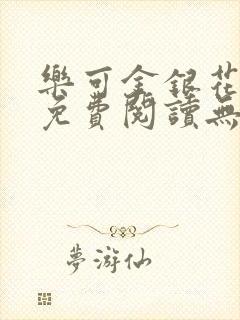 樂可金銀花
免費閱讀無
夢游仙